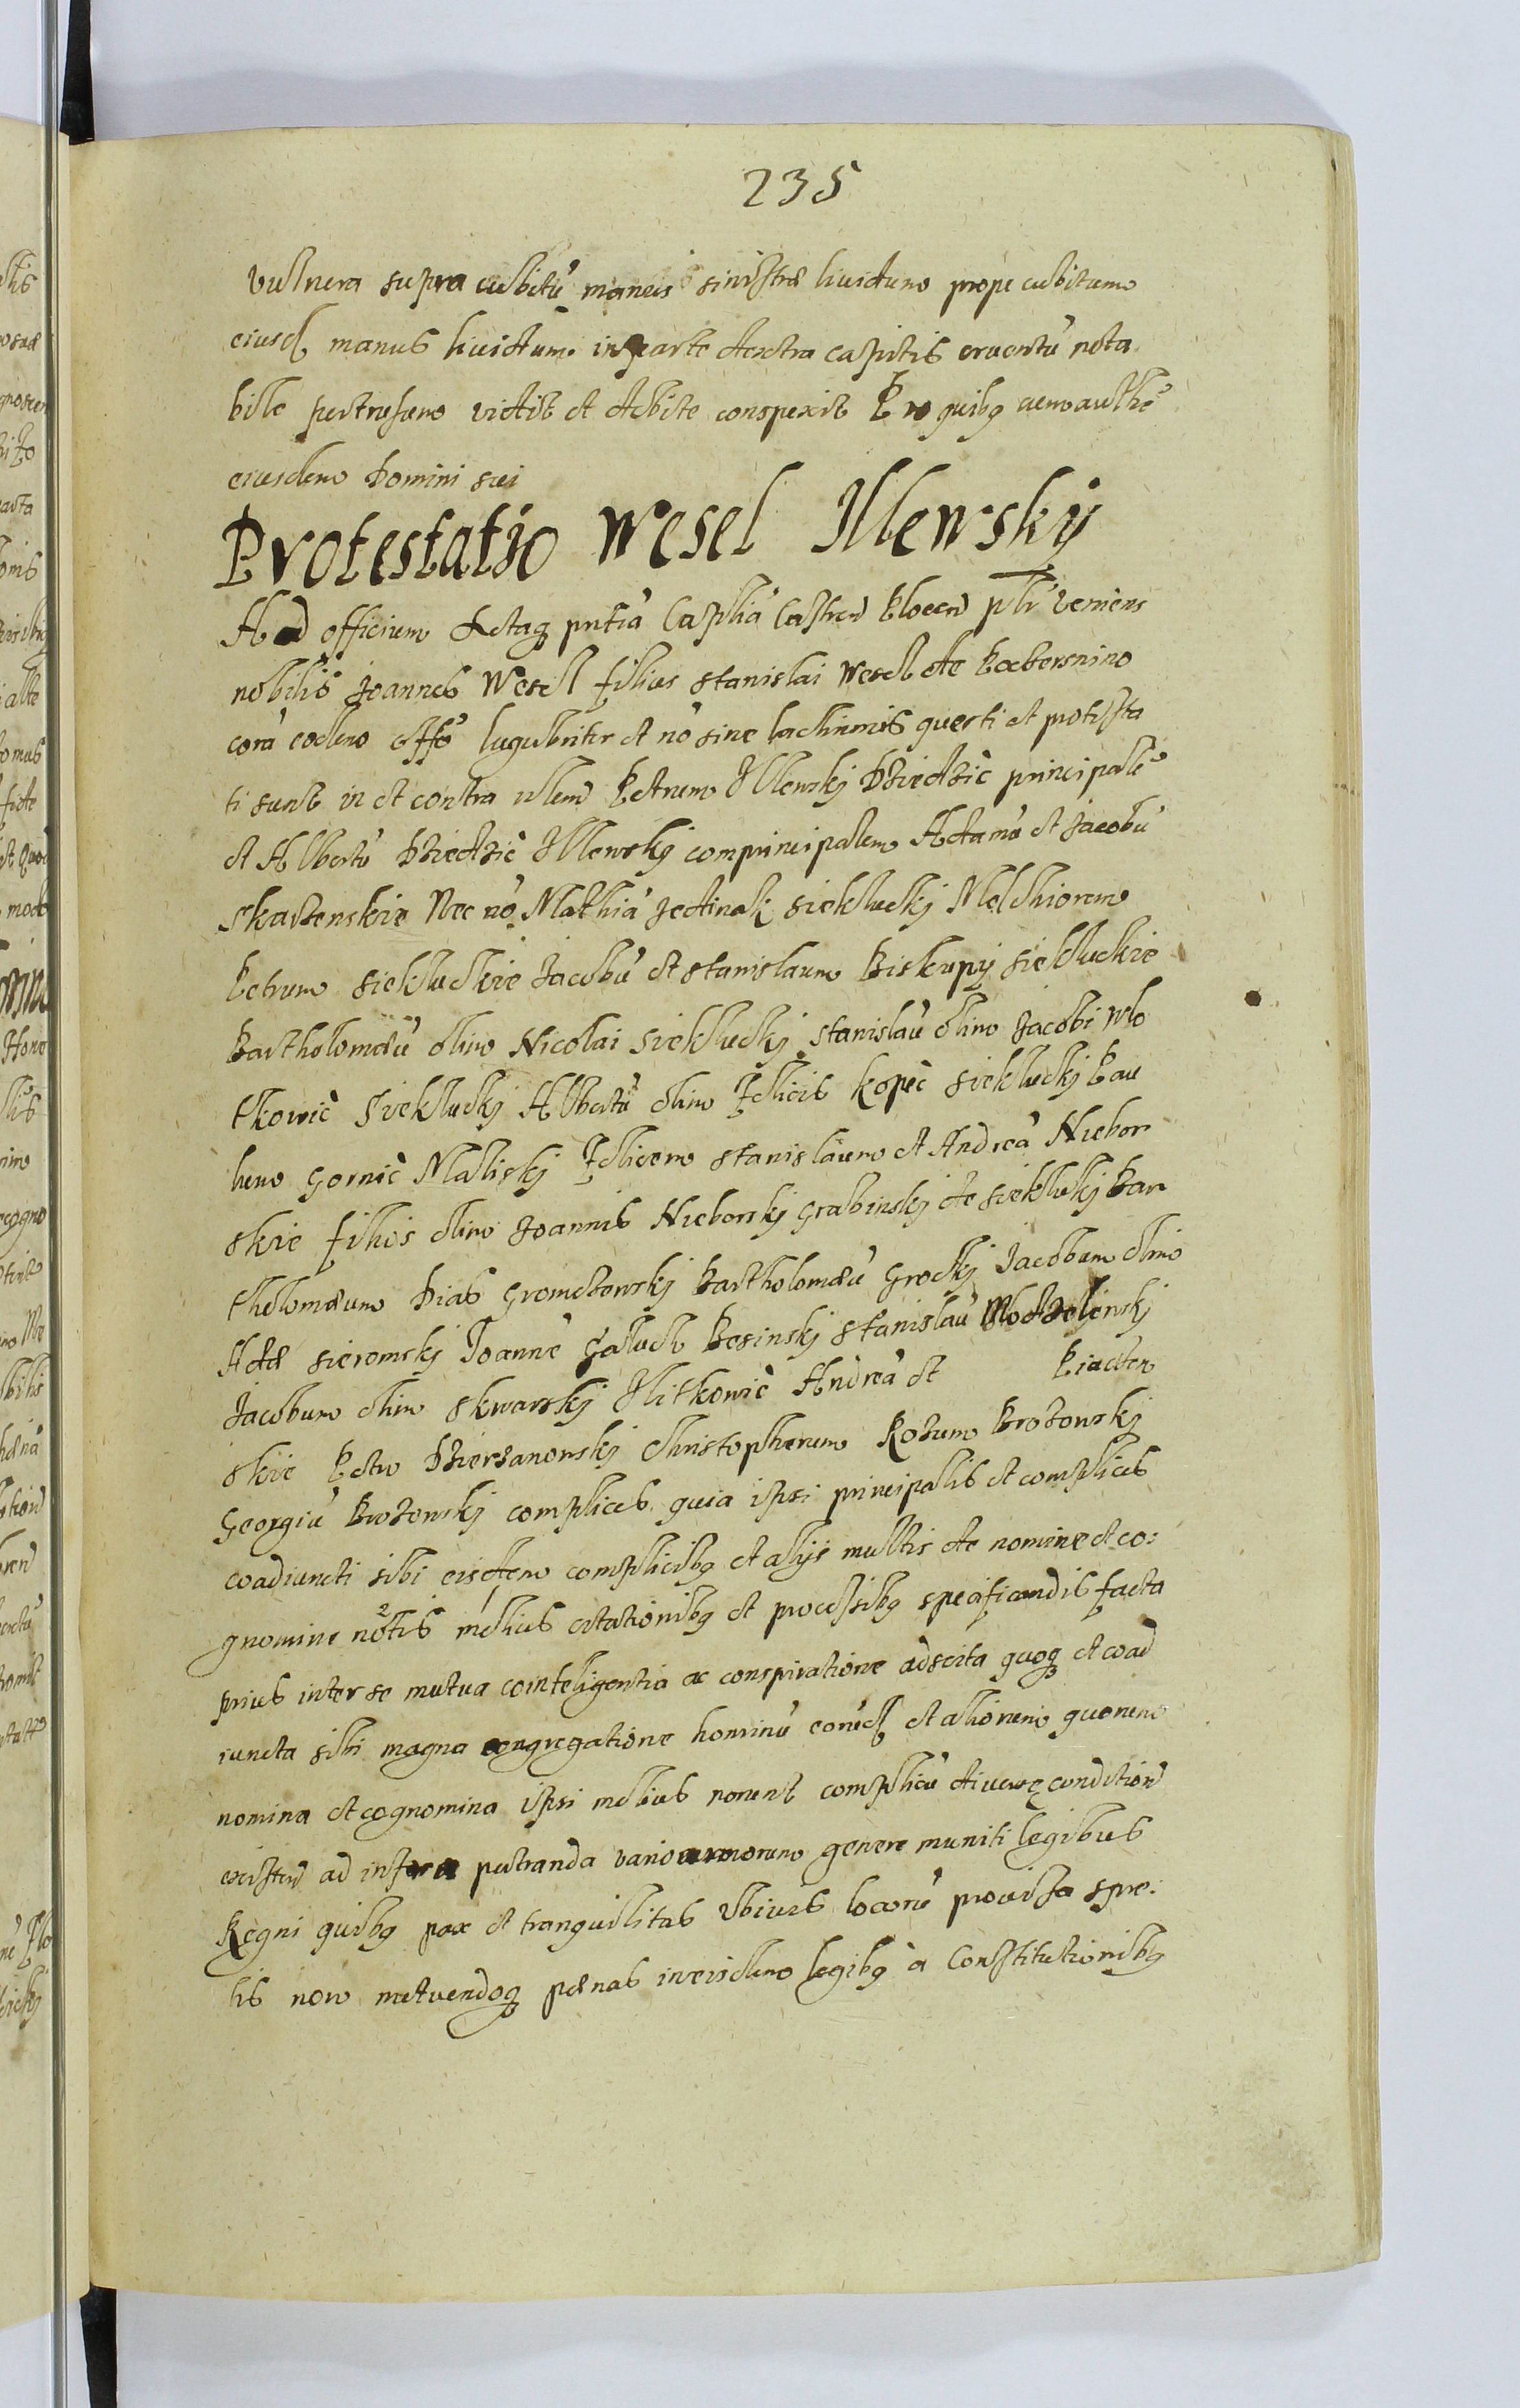 235
vulnera supra cubitū manus sinistræ liuidum prope cubitum
eiusd manus liuidum in parte dextra capitis cruentū nota
bile pertusum vidit et debite conspexit Pro quibq cum authē
eiusdem Domini sui
Protestatio Wesel Illewskÿ
Ad officium Actaq pntia Caplia Castren Plocen plr veniens
nobilis Joannes Wesel filius Stanislai Wesel de
corā eodem offo lugubriter et nō sine lachrimis questi et protesta
ti sunt in et contra nlem Petrum Illewskj Dziedzic principalē
et Albertū Dziedzic Illewskj comprincipalem Adamū et Jacobū
Nec nō Mathiā Jedinak Siekluckj Melchiorem
Petrum Siekluckie Jacobū et Stanislaum Biskupÿ Siekluckie
Bartholomæū olim Nicolai Siekluckj Stanislaū olim Jacobi Wlo
tkowic Siekluckj Albertū olim Felicis Kopec Siekluckj Pau
lum Gornic Maliskj Felicem Stanislaum et Andreā Niebor
skie filios olim Joannis Nieborskj Grabinskj de Siekluki Bar
tholomæum Dias Gromczewskj Bartholomæū Grockj Jacobum olim
Adæ Sieromskj Joannē Galuch Besinskj Stanislaū Modzelenskj
Jacobum olim Skwarskj Ilitkowic Andreā et
skie Petro Dzierzanowskj Christopherum Rozum Brozowskj
Georgiū Brozowskj complices quia ipsi principalis et complices
coadiuncti sibi eisdem complicibq et alijs multis de nomine et co:
gnomine notis melius citationibq et processibq specificandis facta
prius inter se mutua cointeligentia ac conspiratione adscita quoq et coad
iuncta sibi magna congregatione hominū eorūd et aliorum quorum
nomina et cognomina ipsi melius norunt complicū diuersę condition
existen ad infra patranda vario armorum genere muniti legibus
Regni quibq pax et tranquilitas vbiuis locorū prouisa spre:
tis non metuendoq pænas in eisdem legibq a Constitutionibq